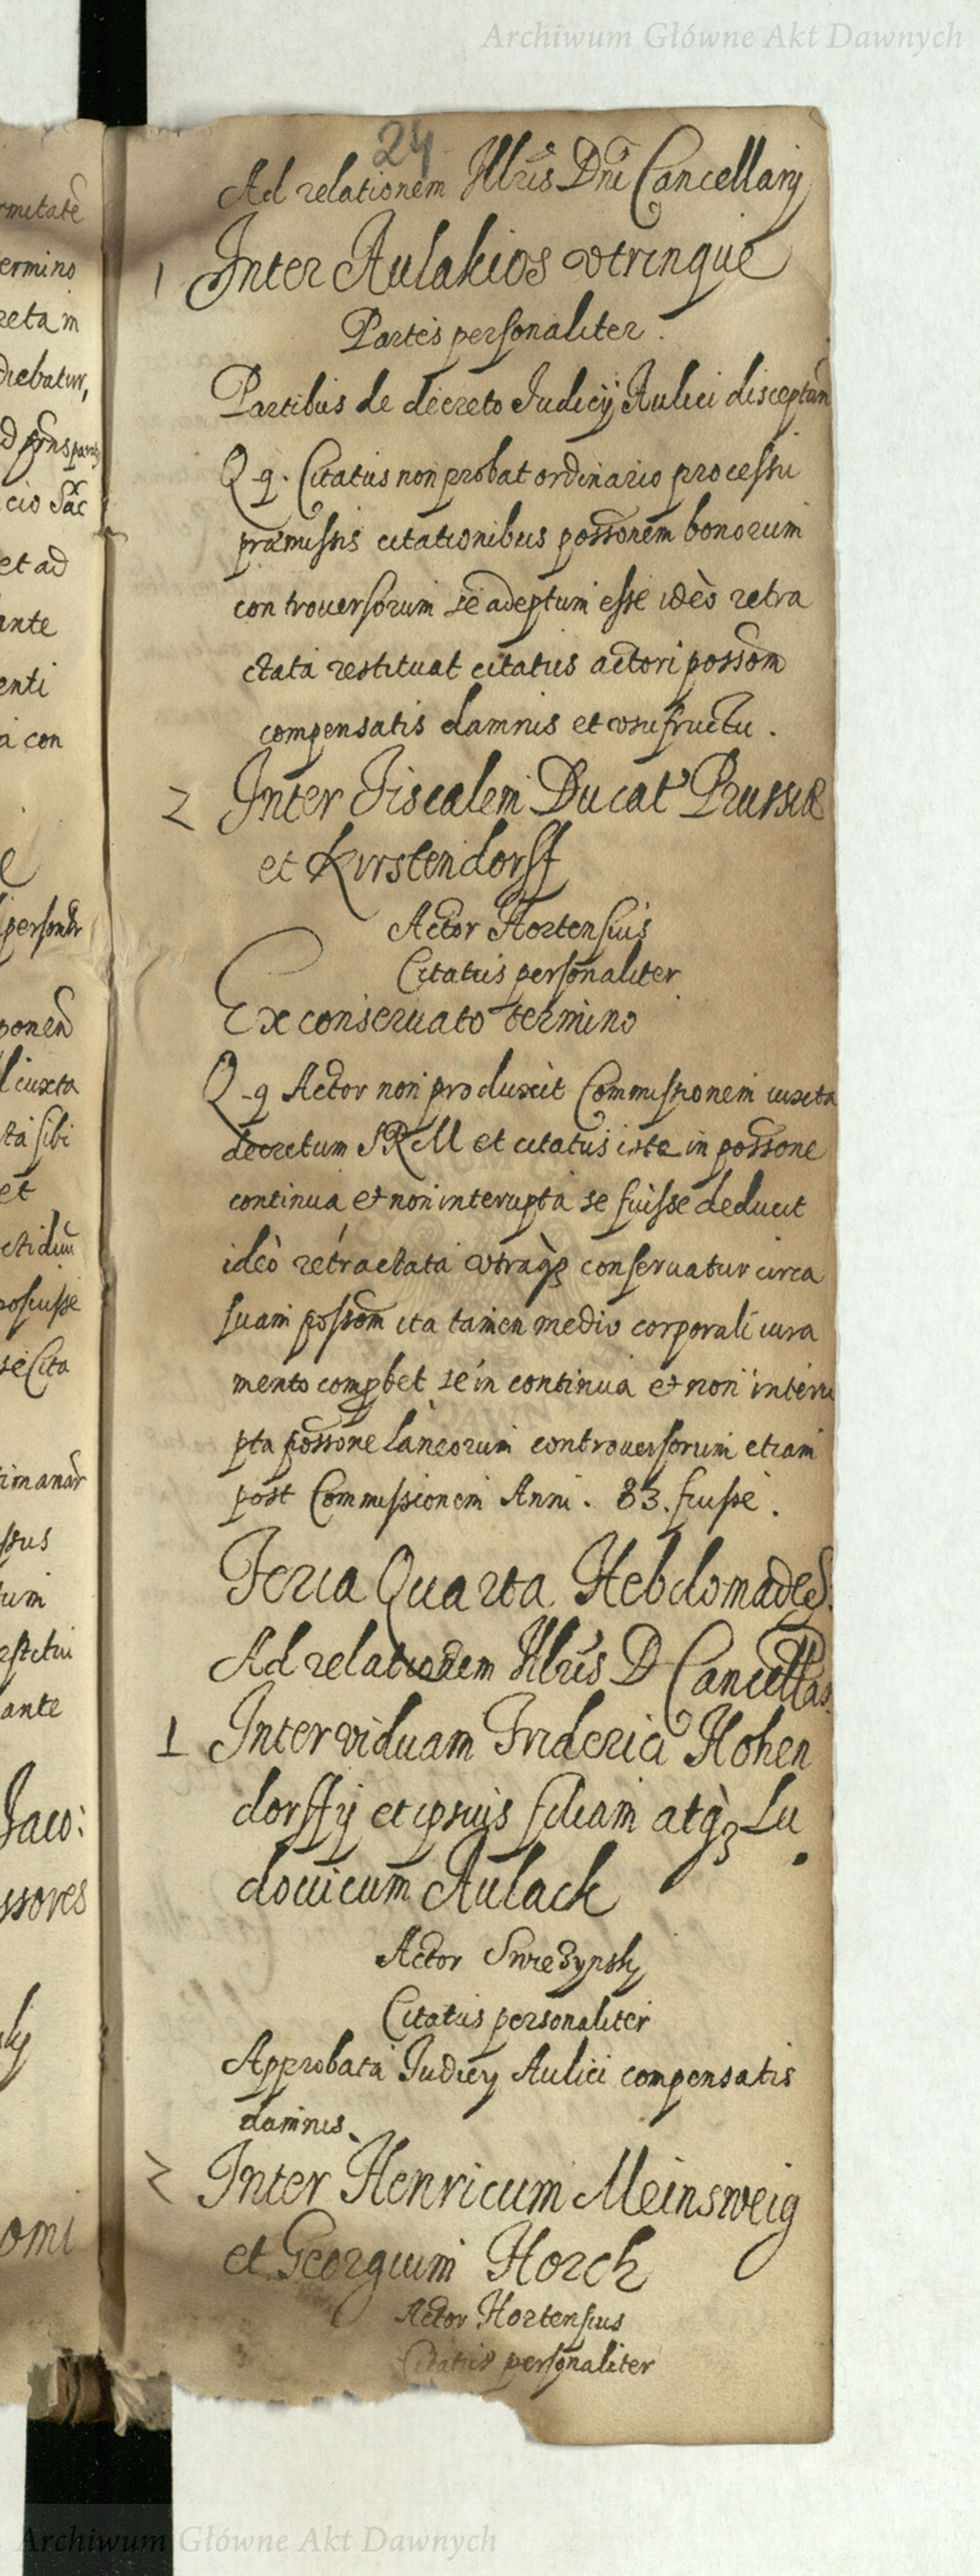 Archiwum Główne Akt Dawnych
24
Ad relationem Illris Dni Cancellarij
1 Inter Aulakios vtrinque
Partes personaliter.
Partibus de decreto Judicij Aulici disceptan
Q q. Citatus non probat ordinario processu
præmissis citationibus possonem bonorum
controuersorum se adeptum esse ideò retra
ctata restituat citatus actori possom
compensatis damnis et vsufructu.
2 Inter Fiscalem Ducat Prussiæ
et Kirstendorff
Actor Hortensius
Citatus personaliter
Ex conseruato termino
Q q Actor non produxit Commissionem iuxta
decretum SRM et citatus iste in possone
continua et non interupta se fuisse deducit
ideò retractata vtraqȝ conseruatur circa
suam possom ita tamen medio corporali iura
mento compbet se in continua et non interu
pta possone laneorum controuersorum etiam
post Commissionem Anni. 83. fuisse.
Feria Quarta Hebdomades
Ad relationem Illris D Cancellar
1 Inter viduam Friderici Hohen
dorffij et ipsius filiam atqȝ Lu
douicum Aulack
Actor
Citatus personaliter
Approbata Judicij Aulici compensatis
damnis.
2 Inter Henricum Meinsweig
et Georgium Horch
Actor Hortensius
Citatus personaliter
Archiwum Główne Akt Dawnych